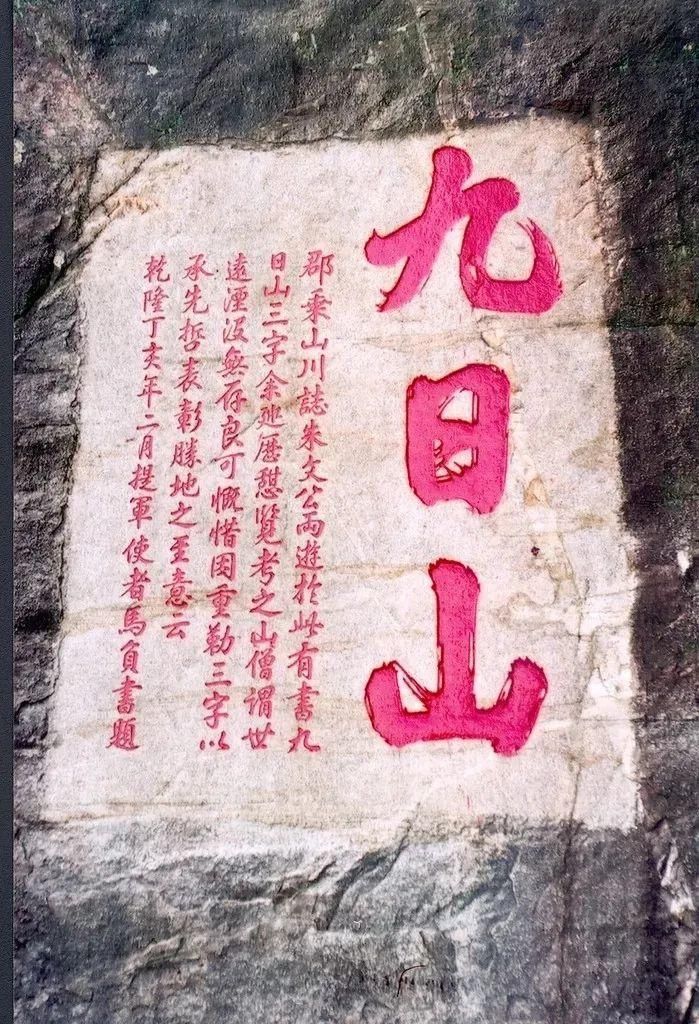 九日山
郡乘山川誌朱文公兩遊於此有書九
日山三字余迹歷憇覽考之山僧謂世
遠湮沒無存良可慨惜因重勒三字以
承先哲表彰勝地之至意云
乾隆丁亥年二月提軍使者馬負書題